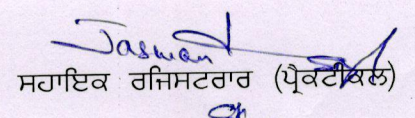 Jasman
ਸਹਾਇਕ ਰਜਿਸਟਰਾਰ (ਪ੍ਰੈਕਟੀਕਲ)